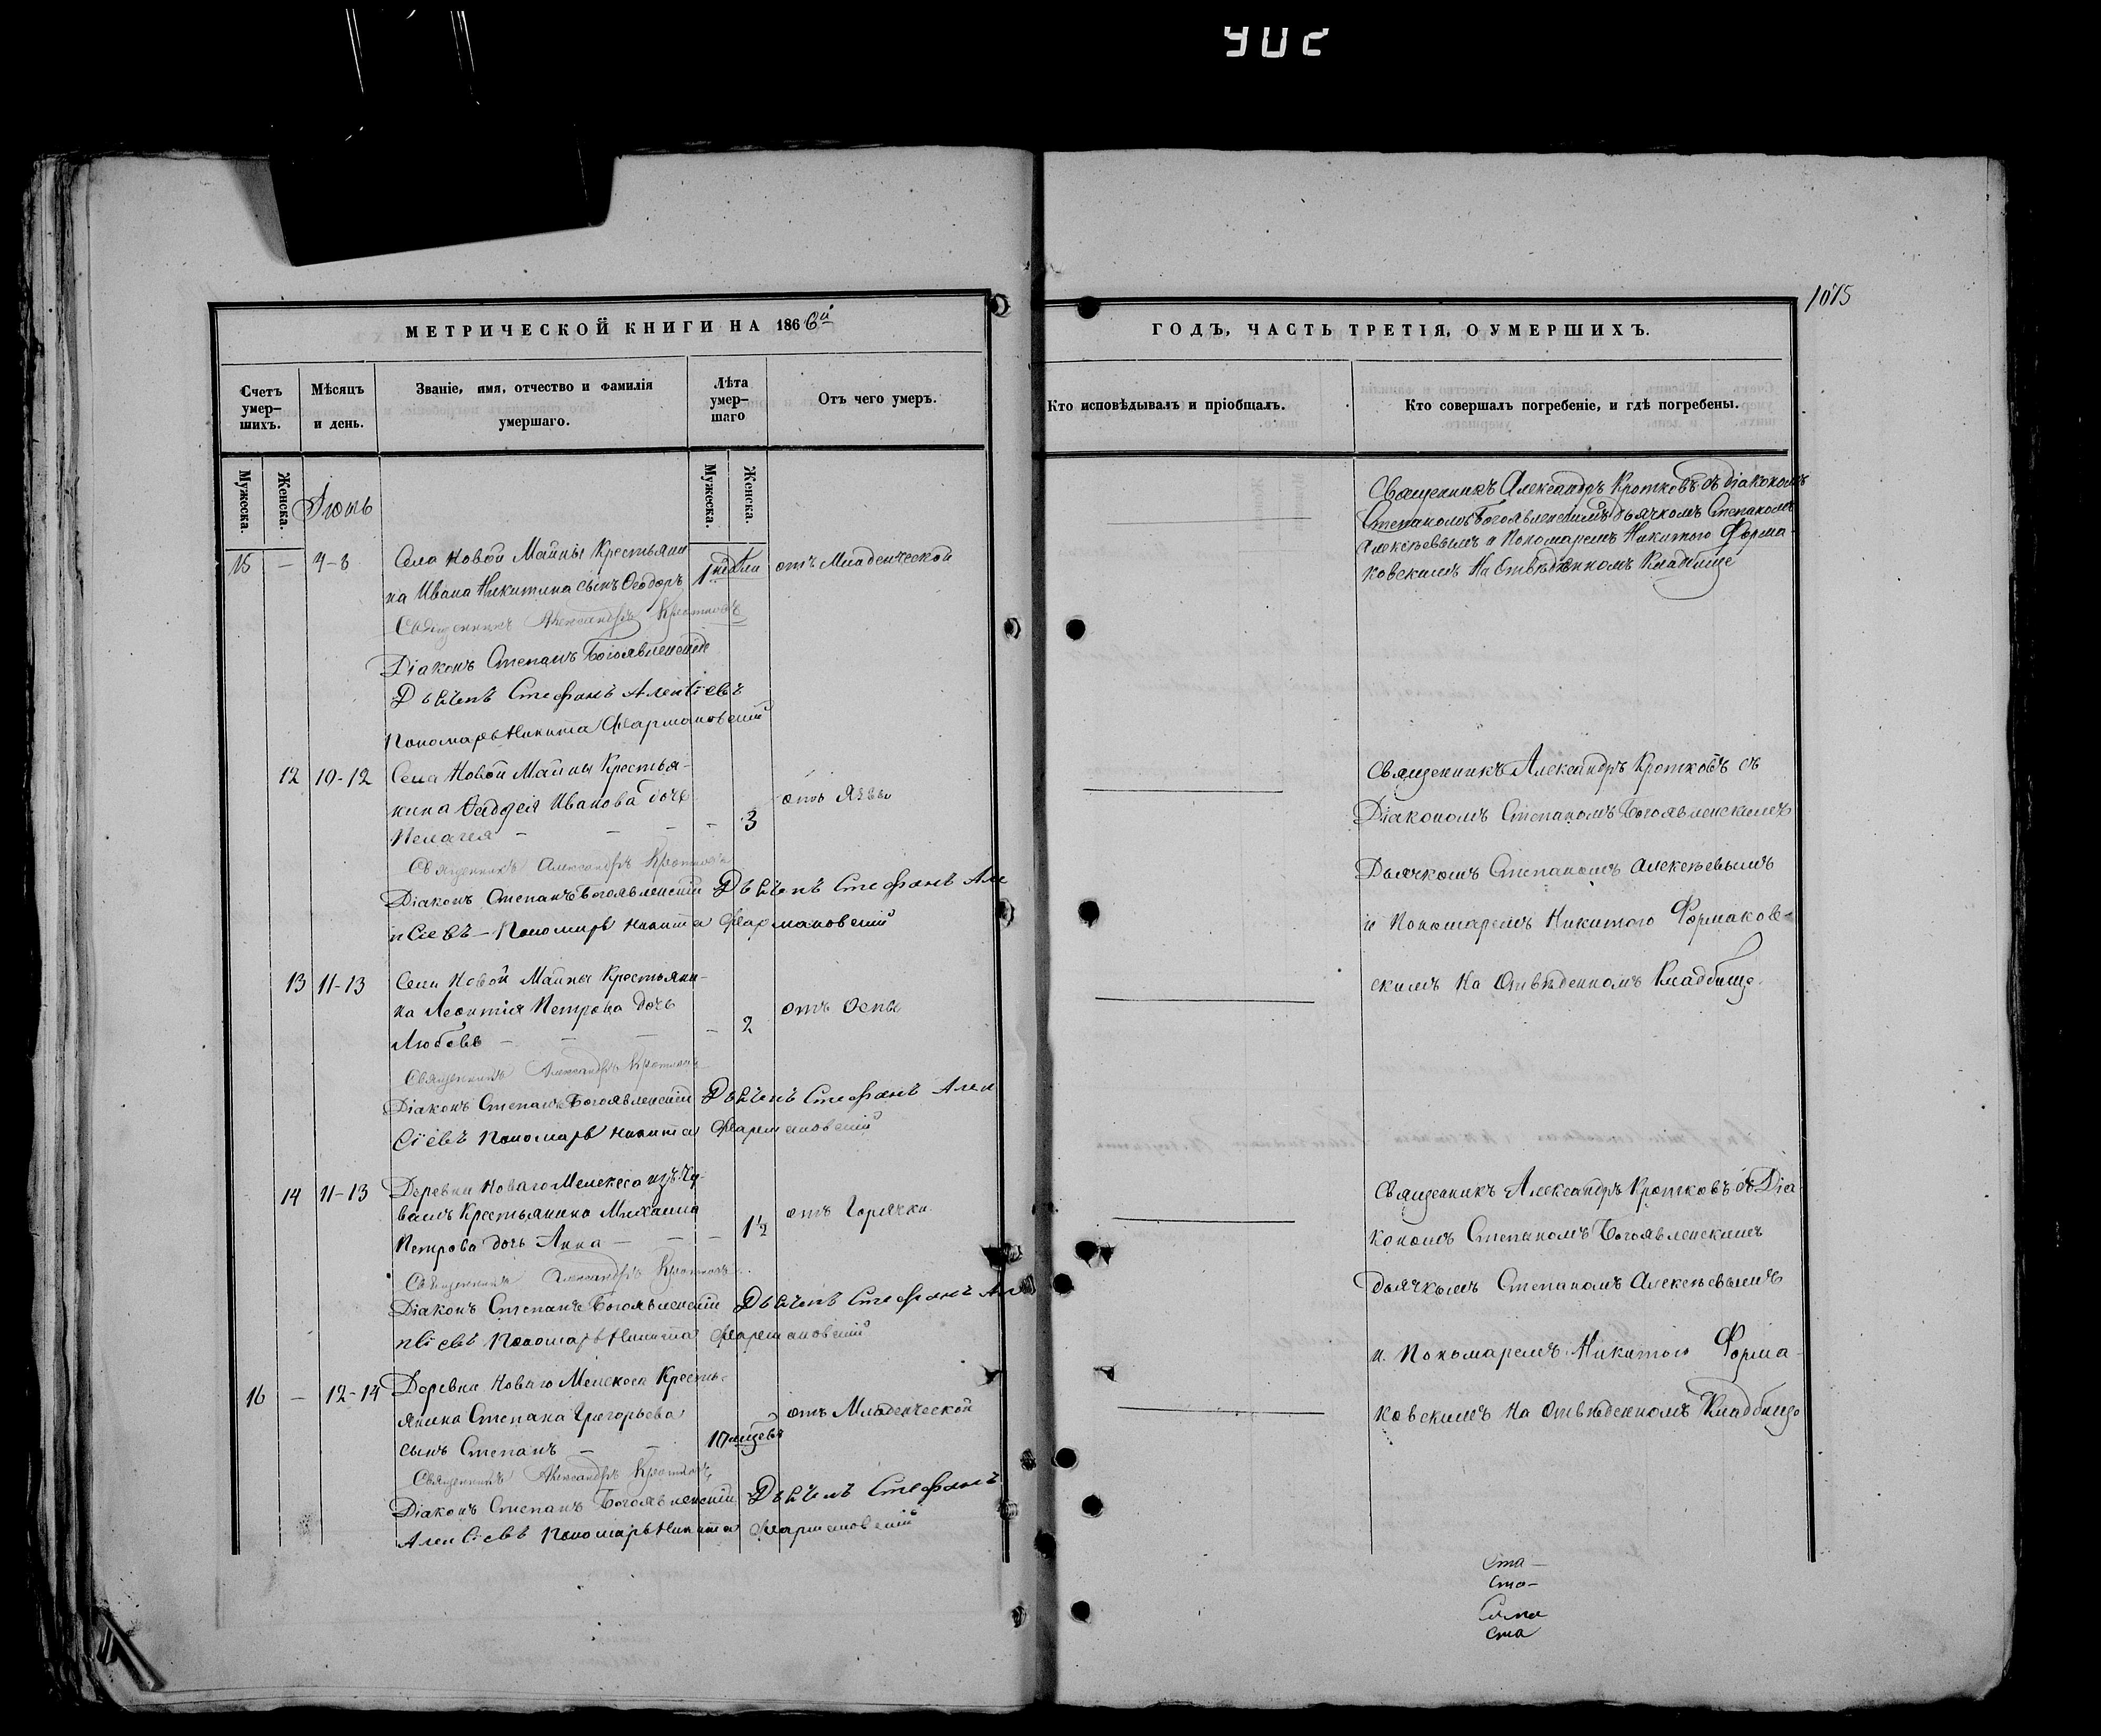 1075
МЕТРИЧЕСКОЙ КНИГИ НА 1866й
ГОДЪ, ЧАСТЬ ТРЕТІЯ, О УМЕРШИХЪ.
Счетъ умер-шихъ.
Мѣсяцъ и день.
Званіе, имя, отчество и фамилія умершаго.
Лѣта умер-шаго
Отъ чего умеръ.
Кто исповѣдывалъ и пріобщалъ.
Кто совершалъ погребеніе, и гдѣ погребены.
Мужеска.
Женска.
Мужеска.
Женска.
15 — 4-6 Села Новой Майны Крестьяни
на Ивана Никитина сынъ Ѳеодоръ
1 недѣли отъ Младенческой
Священникъ Александръ Кротковъ
Діаконъ Степанъ Богоявленскій
Дьячекъ Стефанъ Алексіевъ
Пономарь Никита Фармаковскій
Священникъ Александръ Кротковъ съ діакономъ
Степаномъ Богоявленскимъ дьячкомъ Степаномъ
Алексѣевымъ и Пономаремъ Никитою Форма-
ковскимъ На Отвѣденномъ Кладбище
12 10-12 Села Новой Майны Крестья-
нина Иванова дочь
Пелагея — — — — 3
отъ Язвы
Священникъ Александръ Кротковъ
Діаконъ Степанъ Богоявленскій Дьячекъ Стефанъ Але
ксіевъ — Пономарь Никита Фармаковскій
Священникъ Александръ Кротковъ съ
Діакономъ Степаномъ Богоявленскимъ
Дьячкомъ Степаномъ Алексѣевымъ
и Пономаремъ Никитою Формаков-
скимъ На Отвѣденномъ Кладбище.
13 11-13 Села Новой Майны Крестьяни-
на Леонтія Петрова дочь
Любовь — — — — 2
отъ Оспы
Священникъ Александръ Кротковъ
Діаконъ Степанъ Богоявленскій Дьячекъ Стефанъ Алек
сіевъ Пономарь Никита Фармаковскій
14 11-13 Деревни Новаго Мелекеса изъ Чу-
вашъ Крестьянина Михаила
Петрова дочь Анна — — — 1½
отъ Горячки
Священникъ Александръ Кротковъ
Діаконъ Степанъ Богоявленскій Дьячекъ Стефанъ Але
ксіевъ Пономарь Никита Фармаковскій
Священникъ Александръ Кротковъ съ Діа
кономъ Степаномъ Богоявленскимъ
дьячкомъ Степаномъ Алексѣевымъ
и. Пономаремъ Никитою Форма-
ковскимъ На Отвѣденномъ Кладбище
16 — 12-14 Деревни Новаго Мелекеса Кресть-
янина Степана Григорьева
сынъ Степанъ — —
отъ Младенческой
Священникъ Александръ Кротковъ
Діаконъ Степанъ Богоявленскій Дьячекъ Стефанъ
Алексіевъ Пономарь Никита Фармаковскій